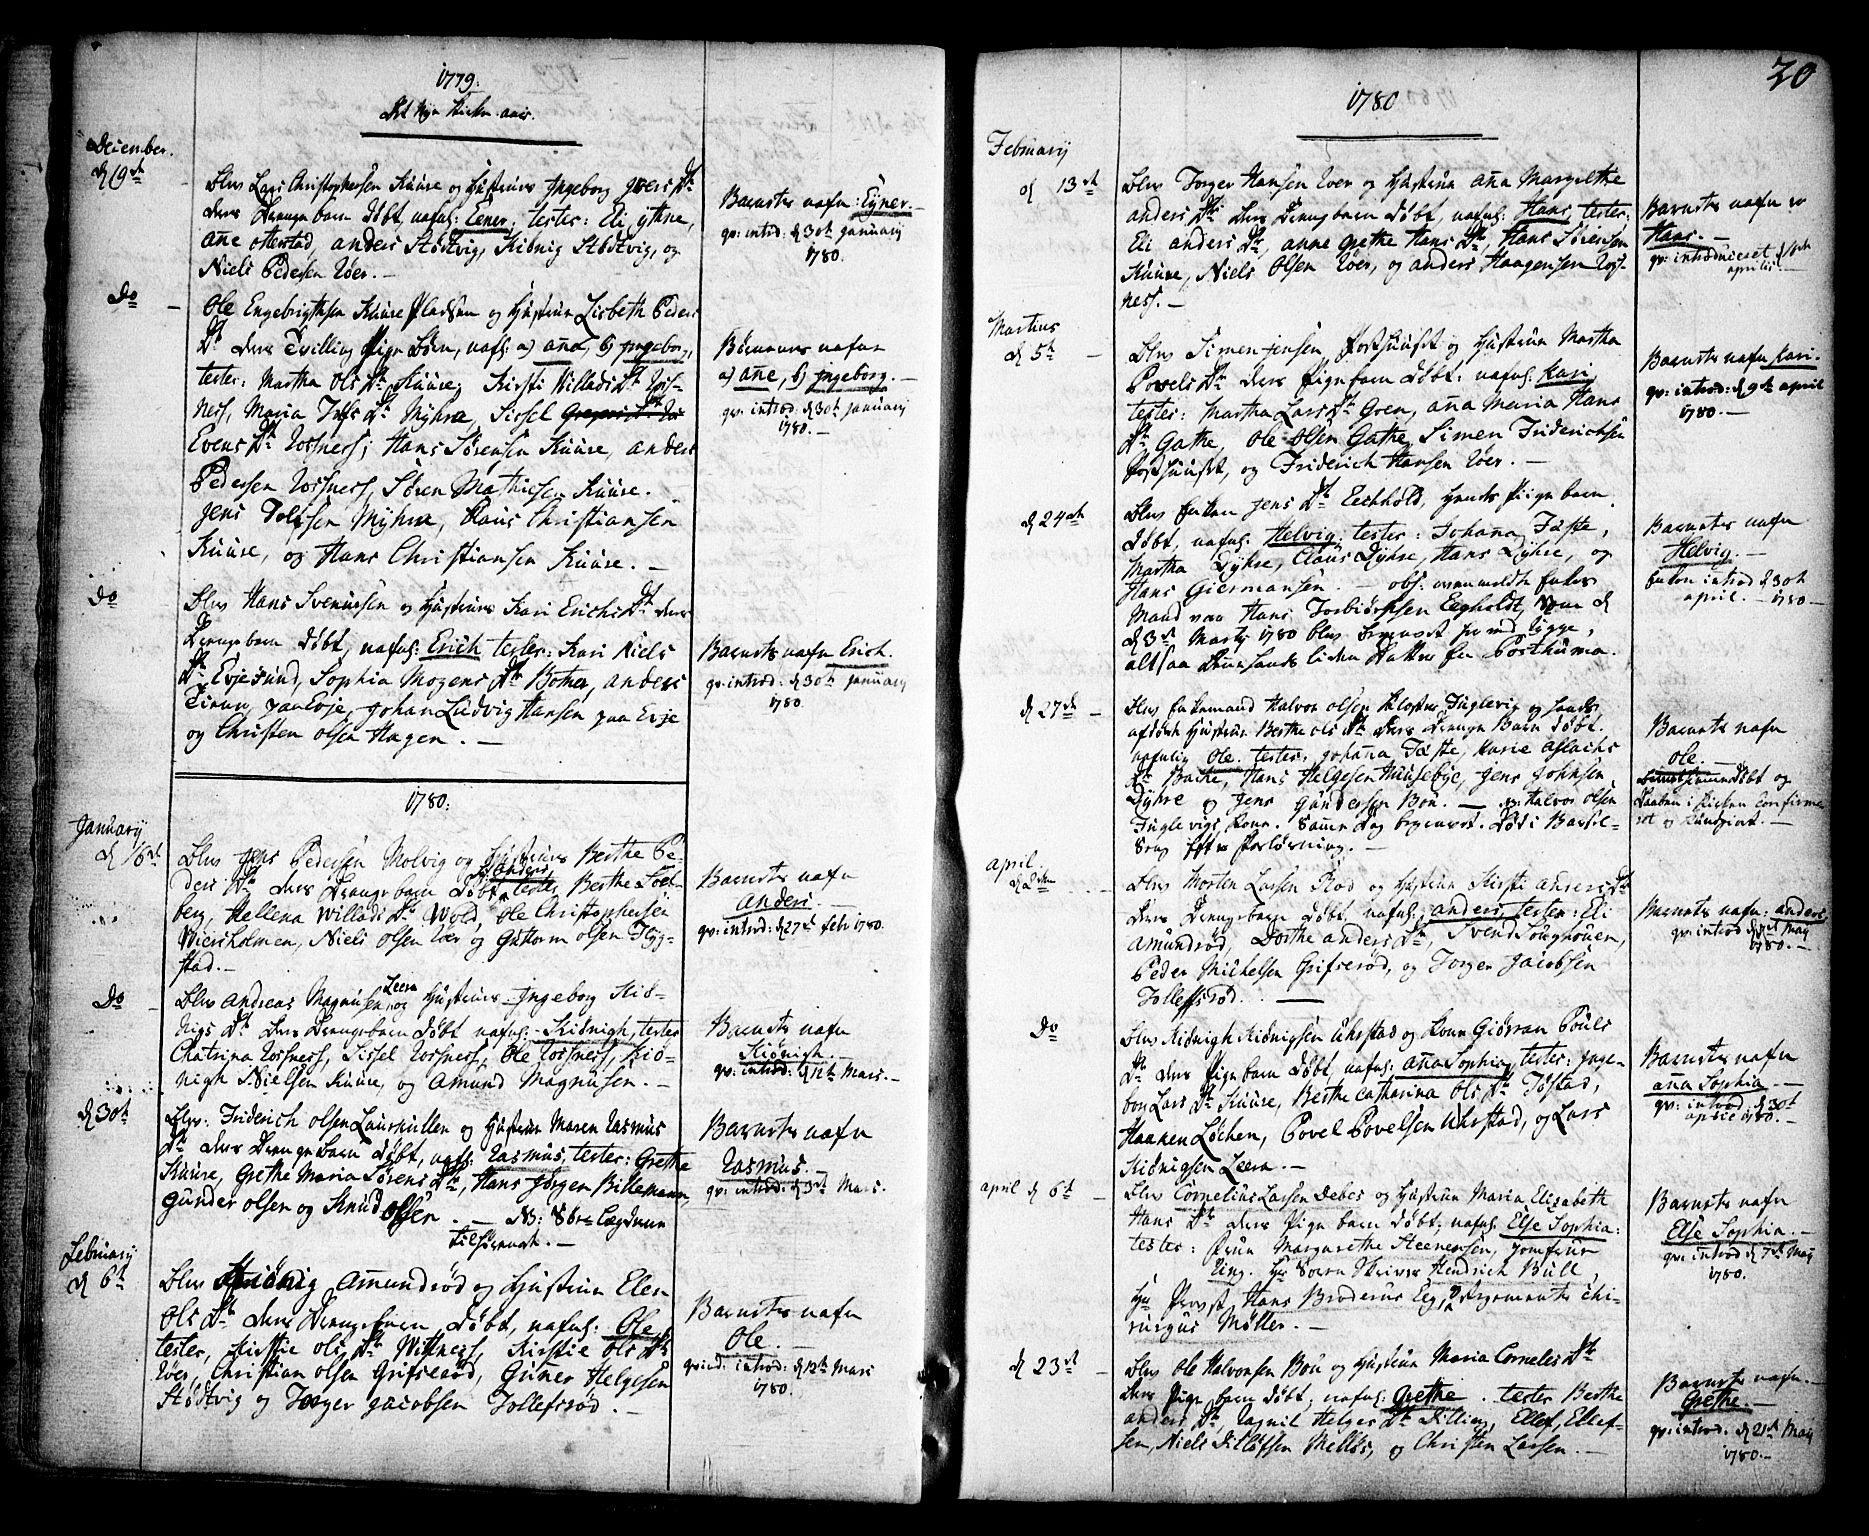 1779.
Det Nye Kirke-aar.
December.
d 19de
Blev Lars Christophersen Kuure og Hustrue Ingeborg Joers Dr
deres Drengebarn døbt, nafnl: Eener, tester: Eli ythne,
Ane otterstad, anders Stødtvig, Kiønig Stødtvig, og
Niels Pedersen Roer. —
Barnets nafn: Eyner. —
qv: introd: d 30te January
1780.
Do —
Ole Engebrigthsen Kuure Pladsen og Hustrue Lisbeth Peders
Dr deres Tvilling Pige Børn, nafnl: a) ane, b) Ingeborg,
tester: Martha Ols Dr Kuure, Kirsti Villads Dr Ros-
ness, Maria Tolfs Dr Myhre, Sissel
Evens Dr Rosness; Hans Sørensen Kuure, anders
Pedersen Rosness, Søren Mathiesen Kuure.
Jens Tolfsen Myhre, Claus Christiansen
Kuure, og Hans Christiansen Kuure. —
Børnenes nafne
a) ane, b) Ingeborg. —
qv: introd: d 30te January
1780. —
Do
Blev Hans Svennesen og Hustrue Kari Erichs Dr deres
Drengebarn døbt, nafnl: Erich tester: Kari Niels
Dr Evjesund, Sophia Mogens Dr Botner, anders
paa Evje, Johan Ludvig Hansen paa Evje
og Christen olsen Hagen. —
Barnets nafn Erich.
qv: introd: d 30te January
1780.
1780.
January
d 16de
Blev Jens Pedersen Molvig og Hustrue Berthe Pe-
ders Dr deres Drengebarn døbt Anders tester Berthe Soel-
berg, Hellena Willads Dr Wold, ole Christophersen
Wiersholmen, Niels olsen Roer og Guttorm olsen Flyg-
stad. —
Barnets nafn
anders
qv: introd: d 27de febr 1780.
Do —
Blev andreas Magnusen Leera og Hustrue Ingeborg Kiø-
nigs Dr deres Drengebarn døbt nafnl: Kiønigh, tester
Chatrina Rosness, Sissel Rosness, Ole Rosness, Kiø-
nigh Nielsen Kuure, og Amund Magnusen. —
Barnets nafn
Kiønigh. —
qv: introd: d 12te Mars. —
d 30te
Blev: Friderich olsen Laurkullen og Hustrue Maren Rasmus
Dr deres Drengebarn døbt, nafnl: Rasmus, tester: Grethe
Kuure, Grethe Maria Sørens Dr, Hans Jørgen Billemann,
Gunder olsen og Knud olsen. — NB: Søe Lægdene
tilhørende. —
Barnets nafn
Rasmus. —
qv: introd: d 3de Mars.
February
d 6te
Blev Kiønig Amundrød og Hustrue Elen
Ols Dr deres Drengebarn døbt, nafnl: Ole,
tester, Kirstie ols Dr Wittness, Kirstie ols Dr
Roer, Christian olsen Grifserød, Guner Helgesen
Stødtvig og Torger Jacobsen Tollefsrød. —
Barnets nafn
Ole.
qvind: introd: d 12te Mars
1780.
20
1780
February
d 13de
Blev Torger Hansen Roer og Hustrue ana Margrethe
anders Dr deres Drengebarn døbt, nafnl: Hans, tester:
Eli anders Dr, anne Grethe Hans Dr, Hans Sørensen
Kuure, Niels Olsen Roer, og anders Haagensen Ros-
ness. —
Barnets nafn er
Hans. —
qv: introduceret d 16de
aprilis. —
Martius
d 5te —
Blev Simen Jensen, Posthuuset og Hustrue Martha
Povels Dr deres Pigebarn døbt: nafnl: Kari,
tester: Martha Lars Dr Groen, ana Maria Hans
Dr Gathe, Ole Olsen Gathe, Simen Friderichsen
Posthuuset, og Friderich Hansen Roer. —
Barnets nafn Kari.
qv: introd: d 9de april
1780. —
d 24de
Blev Enken Jens Dr Eechhold, hendes Pige barn
døbt, nafnl: Helvig; tester: Johana Faste,
Martha Dyhre, Claus Dyhre, Hans Dyhre, og
Hans Giermansen. — obs: meermeldte Enkes
Mand var Hans Torbiørnsen Eegholdt, som d
d 3de Marty 1780 blev begravet
altsaa dennes liden datter en Posthuma.
Barnets nafn
Helvig. —
Enken introd d 30te
april. — 1780 —
d 27de —
Blev Enkemand Halvor olsen Kloster Fuglevig og hans
afdøde Hustrue Berthe ols Dr deres Drenge Barn døbt.
nafnlig Ole. tester, Johana Fæste, Karie aslachs
Dr Backe, Hans Helgesen Huusebye, Jens Johnsen,
Dyhre og Jens Gundersen Bou. — NB: Halvor olsen
Fuglevigs kone samme dag begravet. død i Barsel-
seng efter Forløsning. —
Barnets nafn
Ole. —
hiemmedøbt og
daaben i Kirken confirme-
ret og kundgiort. —
april.
d 2den
Blev Morten Larsen Rød og Hustrue Kirsti anders Dr
deres Drengebarn døbt, nafnl: anders tester: Eli
Amundrød, Dorthe anders Dr, Svend Soughouen,
Peder Michelsen Grifserød, og Torger Jacobsen
Tolleffsrød. —
Barnets nafn: anders
qv: introd May
1780. —
Do
Blev Kiønigh Kiønigsen Uhrstad og kone Giøran Pouls
Dr deres Pige barn døbt, nafnl: Ana Sophia, tester: Inge-
borg Lars Dr Kuure, Berthe Catharina Ols Dr Tostad,
Haaken Løchen, Povel Povelsen Uhrstad, og Lars
Kiønigsen Leera. —
Barnets nafn
ana Sophia —
qv: introd: d 30te
april 1780. —
april d 6te —
Blev Cornelius Larsen Debes og Hustrue Maria Elisabeth
Hans Dr deres Pige barn døbt, nafnl: Else Sophia:
tester: Frue Margarethe Steenersen, Jomfrue
Ring. Hr Soren Skriver Hendrich Bull,
Hr Provst, Hans Broderus Eeg, Regements Chi-
rurgus Møller. —
Barnets nafn
Else Sophia. —
qv: introd d 7de May
1780.
d 23de —
Blev Ole Halvorsen Bou og Hustrue Maria Cornelis Dr
deres Pige barn døbt, nafnl: Grethe. tester Berthe
anders Dr, Ragnil Helges Dr Dilling, Ellef, Ellef-
sen, Niels Ditlofsen Melløs, og Christen Larsen. —
Barnets nafn. —
Grethe. —
qv: introd: d 21de May
1780. —